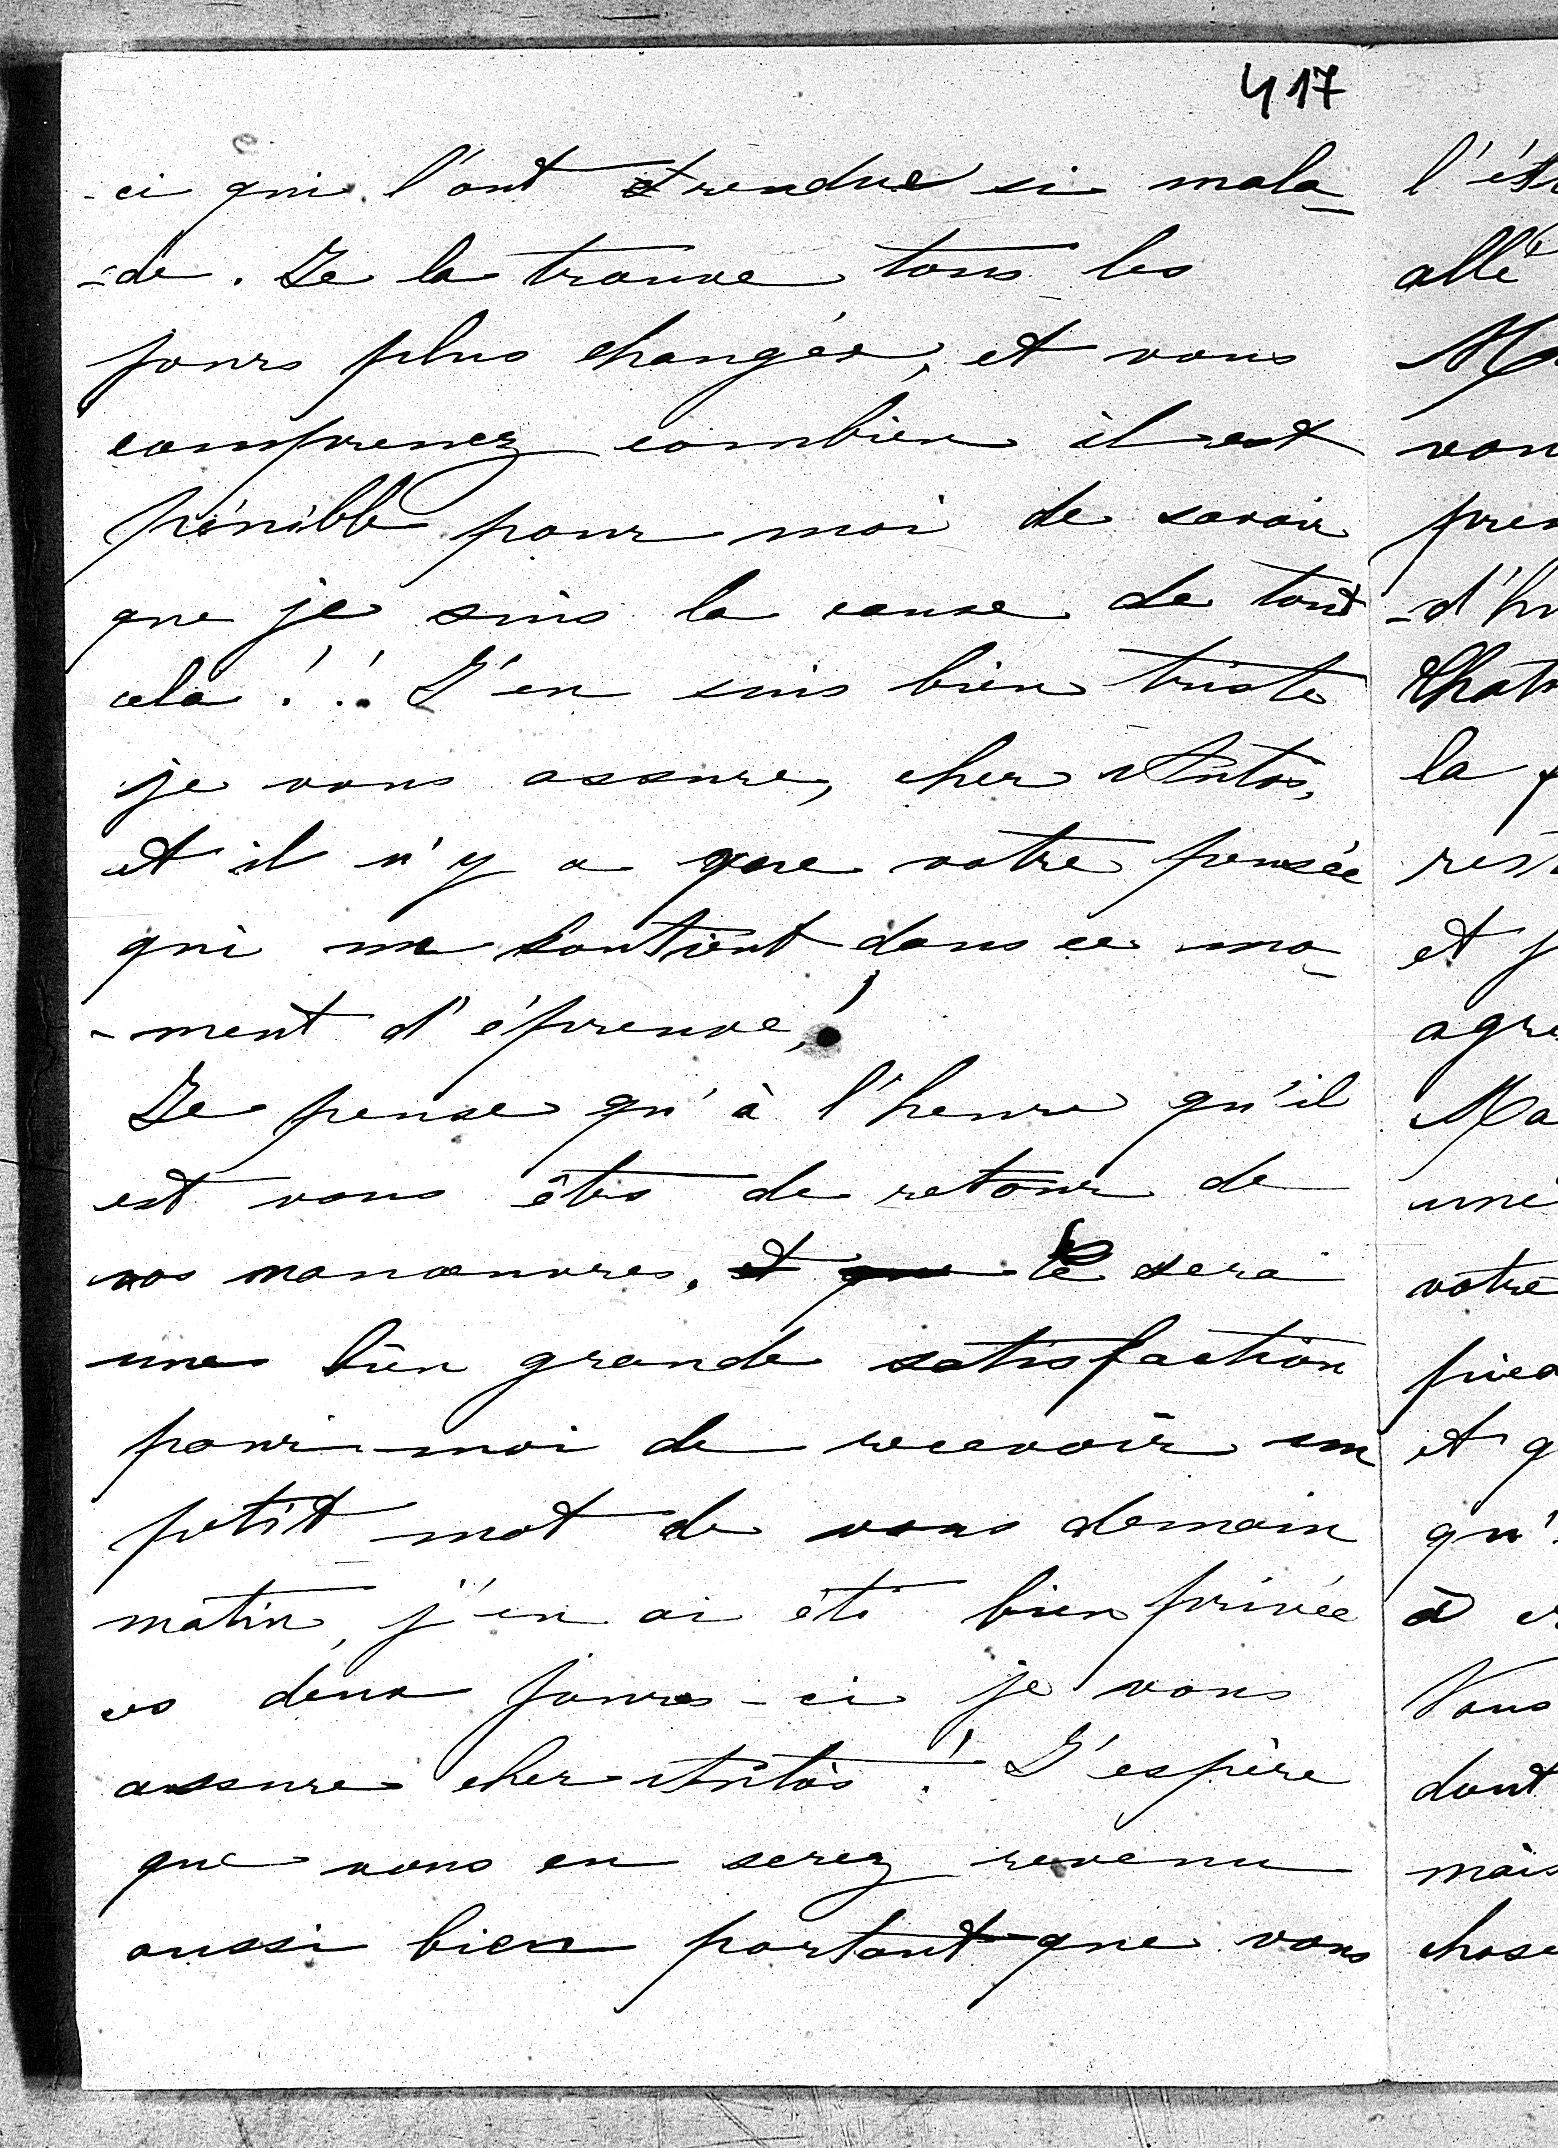 417
-ci qui l'ont rendue si mala-
-de. Je la trouve tous les
jours plus changée, et vous
comprenez combien il est
pénible pour moi de savoir
que je suis la cause de tout
cela !! J'en suis bien triste
je vous assure, cher
et il n'y a que votre pensée
qui me soutient dans ce mo-
-ment d'épreuve !
Je pense qu'à l'heure qu'il
est vous êtes de retour de
vos manœuvres. et que ce sera
une bien grande satisfaction
pour moi de recevoir un
petit mot de vous demain
matin, j'en ai été bien privée
ces deux jours-ci je vous
assure cher ! J'espère
que vous en serez revenu
aussi bien portant que vous
allé
et
la
votre
et
à
Vous
dont
mais